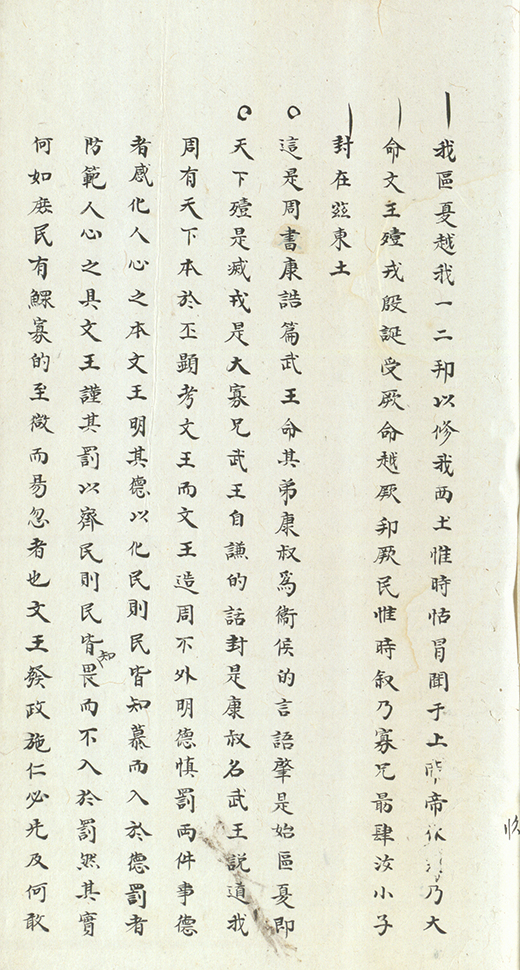 我區夏越我一二邦以修我西土惟時怙冒聞于上帝帝休天乃大
命文王殪戎殷誕受厥命越厥邦厥民惟時叙乃寡兄朂肆汝小子
封在茲東土
這是周書康誥篇武王命其弟康叔爲衞侯的言語肇是始區夏即
天下殪是滅戎是大寡兄武王自謙的話封是康叔名武王説道我
周有天下本於丕顯考文王而文王造周不外明德慎罰兩件事德
者感化人心之本文王明其德以化民則民皆知慕而入於德罰者
防範人心之具文王謹其罰以齊民則民皆知畏而不入於罰然其實
何如庶民有鰥寡的至微而易忽者也文王發政施仁必先及何敢